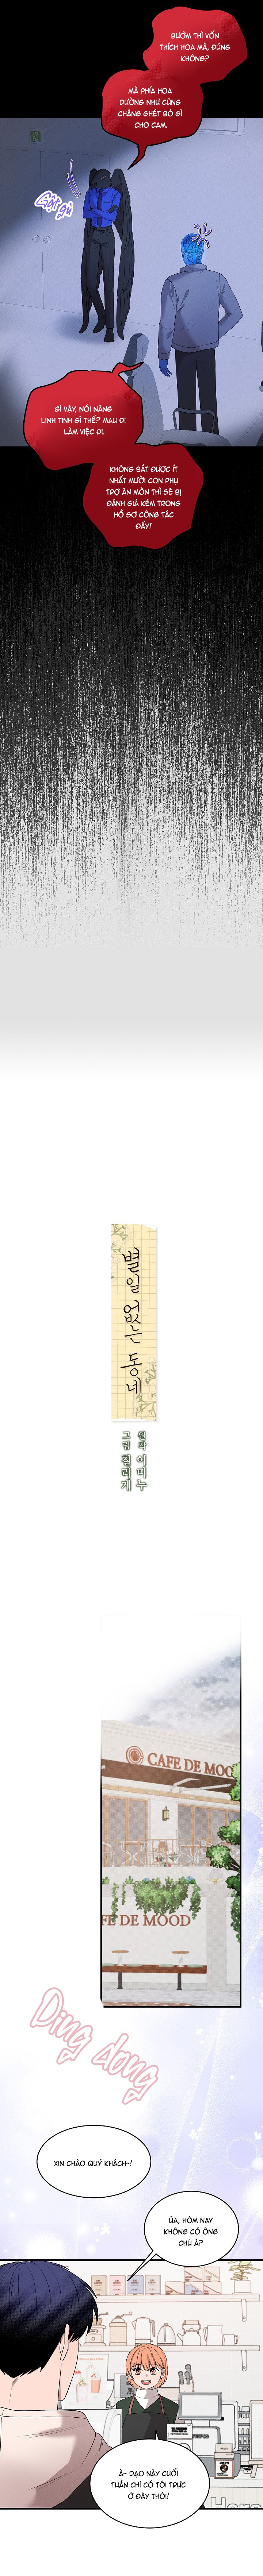 BƯỚM THÌ VỐN
THÍCH HOA MÀ, ĐÚNG
KHÔNG?
MÀ PHÍA HOA
DƯỜNG NHƯ CŨNG
CHẲNG GHÉT BỎ GÌ
CHO CAM.
GÌ VẬY, NÓI NĂNG
LINH TINH GÌ THẾ? MAU ĐI
LÀM VIỆC ĐI.
KHÔNG BẮT ĐƯỢC ÍT
NHẤT MƯỜI CON PHỤ
TRỢ ĂN MÒN THÌ SẼ BỊ
ĐÁNH GIÁ KÉM TRONG
HỒ SƠ CÔNG TÁC
ĐẤY!
별일 없는 동네
원작 이미누
그림 퀸리게
CAFE DE MOOD
FE DE MOOD
Ding dong
XIN CHÀO QUÝ KHÁCH~!
ỦA, HÔM NAY
KHÔNG CÓ ÔNG
CHÚ À?
À- DẠO NÀY CUỐI
TUẦN CHỈ CÓ TÔI TRỰC
Ở ĐÂY THÔI!